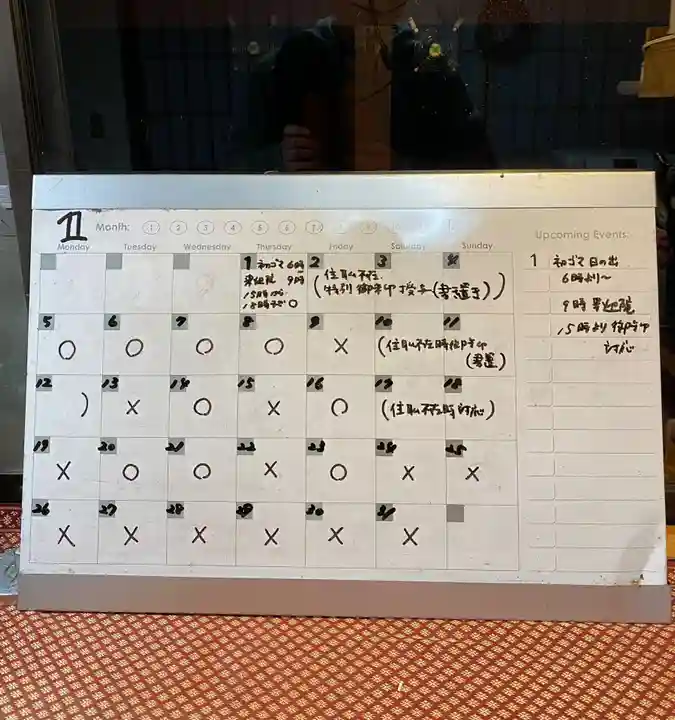 1 Month: 1 2 3 4 5 6 7
Upcoming Events:
Monday Tuesday Wednesday Thursday Friday Saturday Sunday
1 初ゴマ 6時
9時
15時から
18時まで ○
2 3 4
(住職不在
特別御朱印授与(書き置き))
5 ○
6 ○
7 ○
8 ○
9 ×
10 11
(住職不在時御朱印
(書置)
12 )
13 ×
14 ○
15 ×
16 ○
17 18
(住職不在時対応)
19 ×
20 ○
21 ○
22 ×
23 ○
24 ×
25 ×
26 ×
27 ×
28 ×
29 ×
30 ×
31 ×
1 初ゴマ 日の出
6時より〜
9時
15時より 御朱印
対応